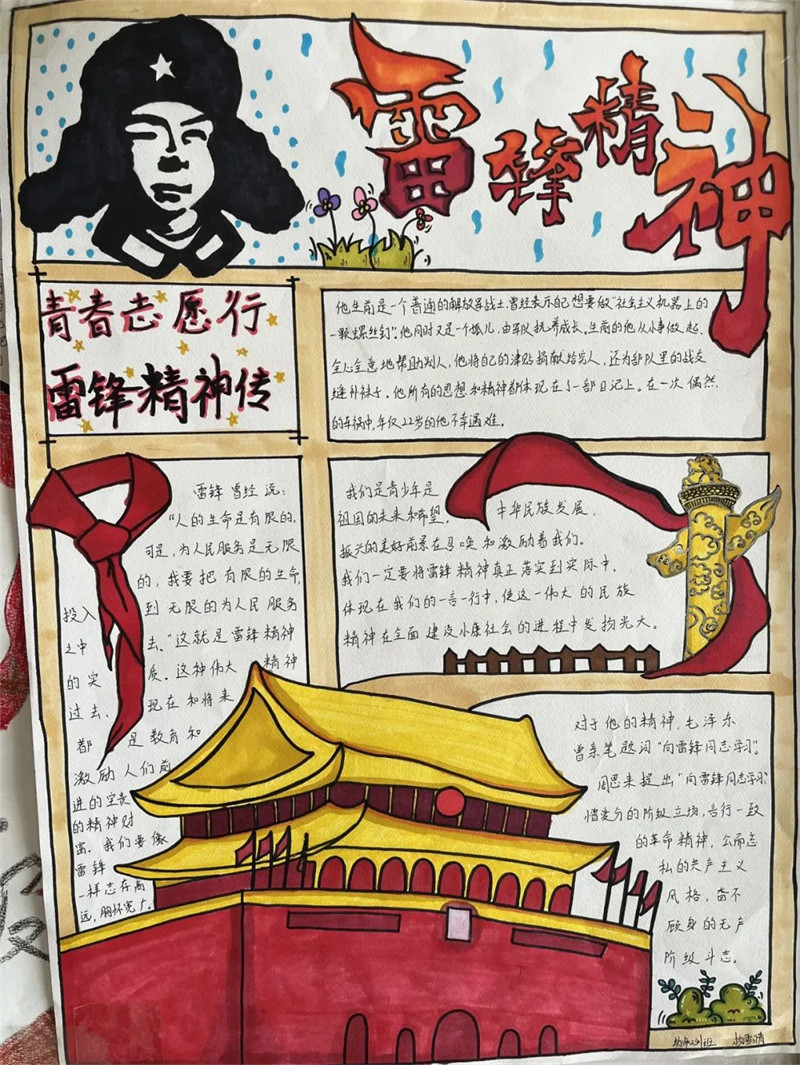 雷锋精神
青春志愿行
雷锋精神传
他生前是一个普通的解放军战士,曾经表示自己想要做“社会主义机器上的
一颗螺丝钉”。他同时又是一个孤儿,由军队抚养成长。生前的他从小事做起,
全心全意地帮助别人,他将自己的津贴捐献给穷人,还为部队里的战友
缝补袜子。他所有的思想和精神都体现在了一部日记上。在一次偶然
的车祸中,年仅22岁的他不幸遇难。
雷锋曾经说:
“人的生命是有限的,
可是,为人民服务是无限
的,我要把有限的生命,
投入到无限的为人民服务
之中去。”这就是雷锋精神
的实质。这种伟大精神
过去、现在和将来
都是教育和
激励人们前
进的宝贵
的精神财
富。我们要像
雷锋
一样志存高
远,胸怀宽广。
我们是青少年是
祖国的未来和希望,中华民族发展、
振兴的美好前景在召唤和激励着我们。
我们一定要将雷锋精神真正落实到实际中,
体现在我们的一言一行中,使这一伟大的民族
精神在全面建设小康社会的进程中发扬光大。
对于他的精神,毛泽东
曾亲笔题词“向雷锋同志学习”。
周恩来提出“向雷锋同志学习
憎爱分的阶级立场,言行一致
的革命精神,公而忘
私的共产主义
风格,奋不
顾身的无产
阶级斗志。